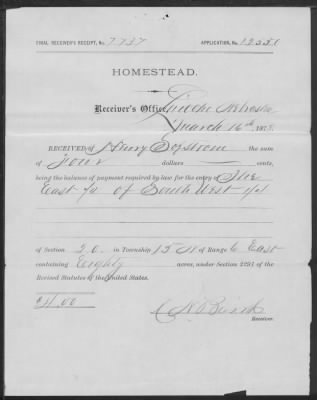 FINAL RECEIVER'S RECEIPT, No. 7737 APPLICATION, No. 12550
HOMESTEAD.
Receiver's Office, Nebraska
March 16th 187
RECEIVED of Henry the sum
of Four dollars cents,
being the balance of payment required by law for the entry of The
East 1/2 of South West 1/4
of Section 20 in Township 15 N of Range 6 East
containing Eighty acres, under Section 2291 of the
Revised Statutes of the United States.
$4.00
Receiver.